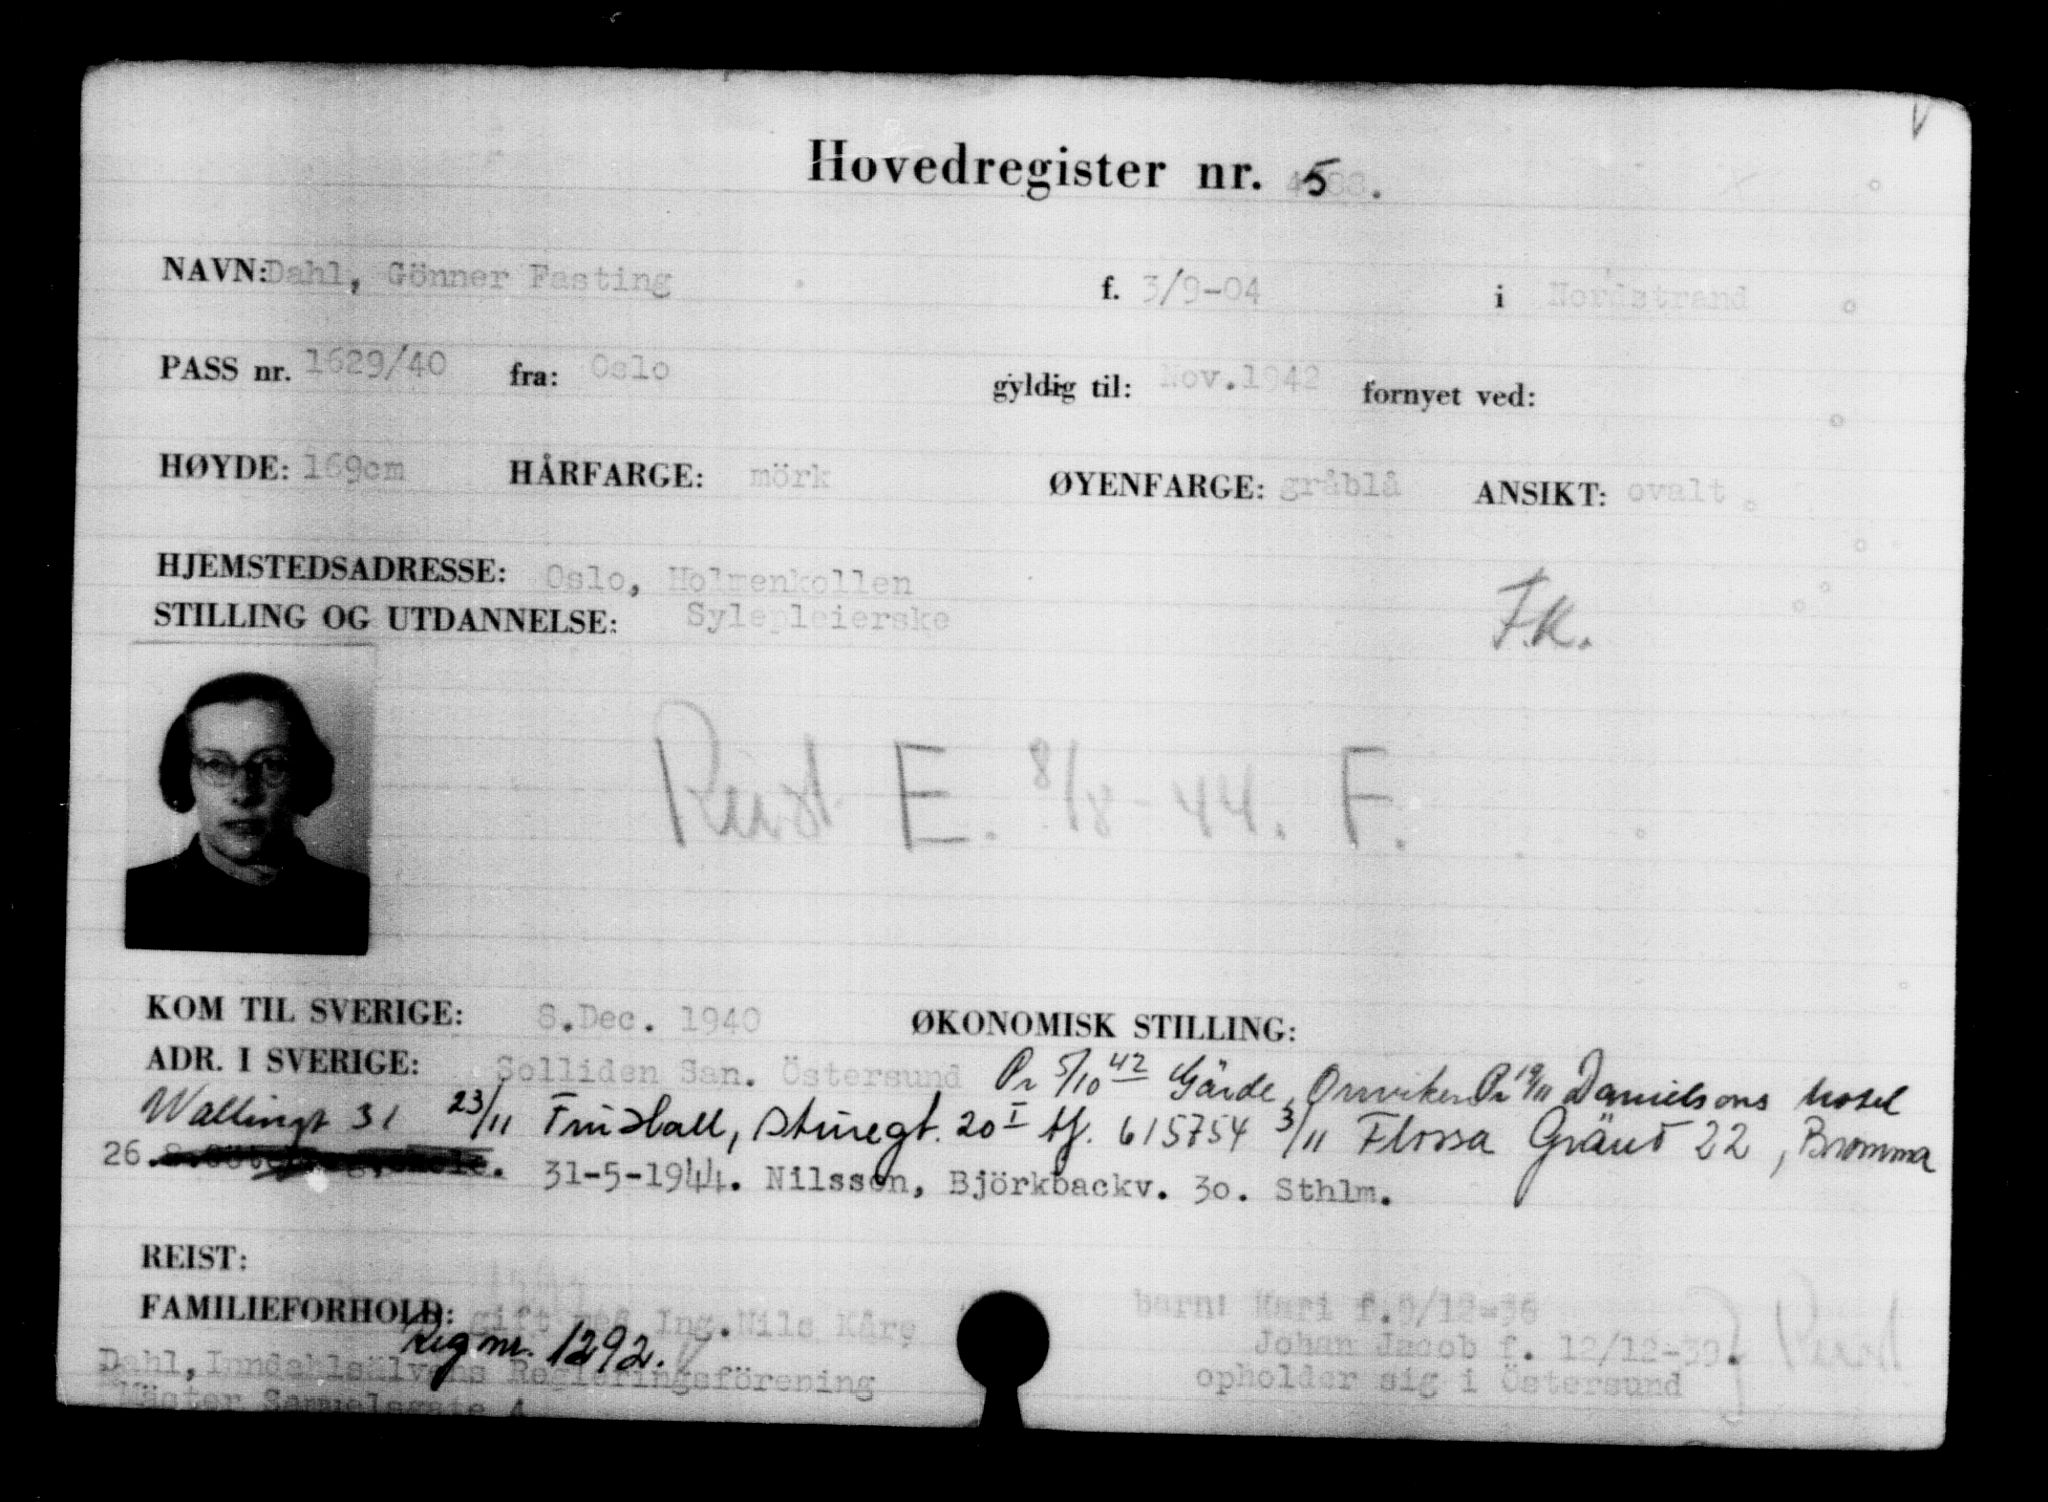 Hovedregister nr. 5
NAVN: Dahl, Gönner Fasting f. 3/9-04 i Nordstrand
PASS nr. 1629/40 fra: Oslo gyldig til: Nov.1942 fornyet ved:
HØYDE: 169cm HÅRFARGE: mörk ØYENFARGE: gråblå ANSIKT: ovalt
HJEMSTEDSADRESSE: Oslo, Holmenkollen
STILLING OG UTDANNELSE: Sylepleierske
F.K.
E. 8/8-44. F.
KOM TIL SVERIGE: 8.Dec. 1940 ØKONOMISK STILLING:
ADR. I SVERIGE: Solliden San. Östersund Pr 5/10 42 Gärde, Pr 19/11 Danielsons hotel
Wallingt 31 23/11 Sturegt. 20 I tf. 615754 3/11 Flossa Gränd 22, Bromma
26. 31-5-1944. Nilsson, Björkbackv. 30. Sthlm.
REIST:
FAMILIEFORHOLD: gift med Ing.Nils Kåre barn: Kari f.9/12-36
Reg nr. 1292. Johan Jacob f. 12/12-39.
Dahl, Inndahlsälvens Regleringsförening opholder sig i Östersund
Mäster Samuelsgate 4